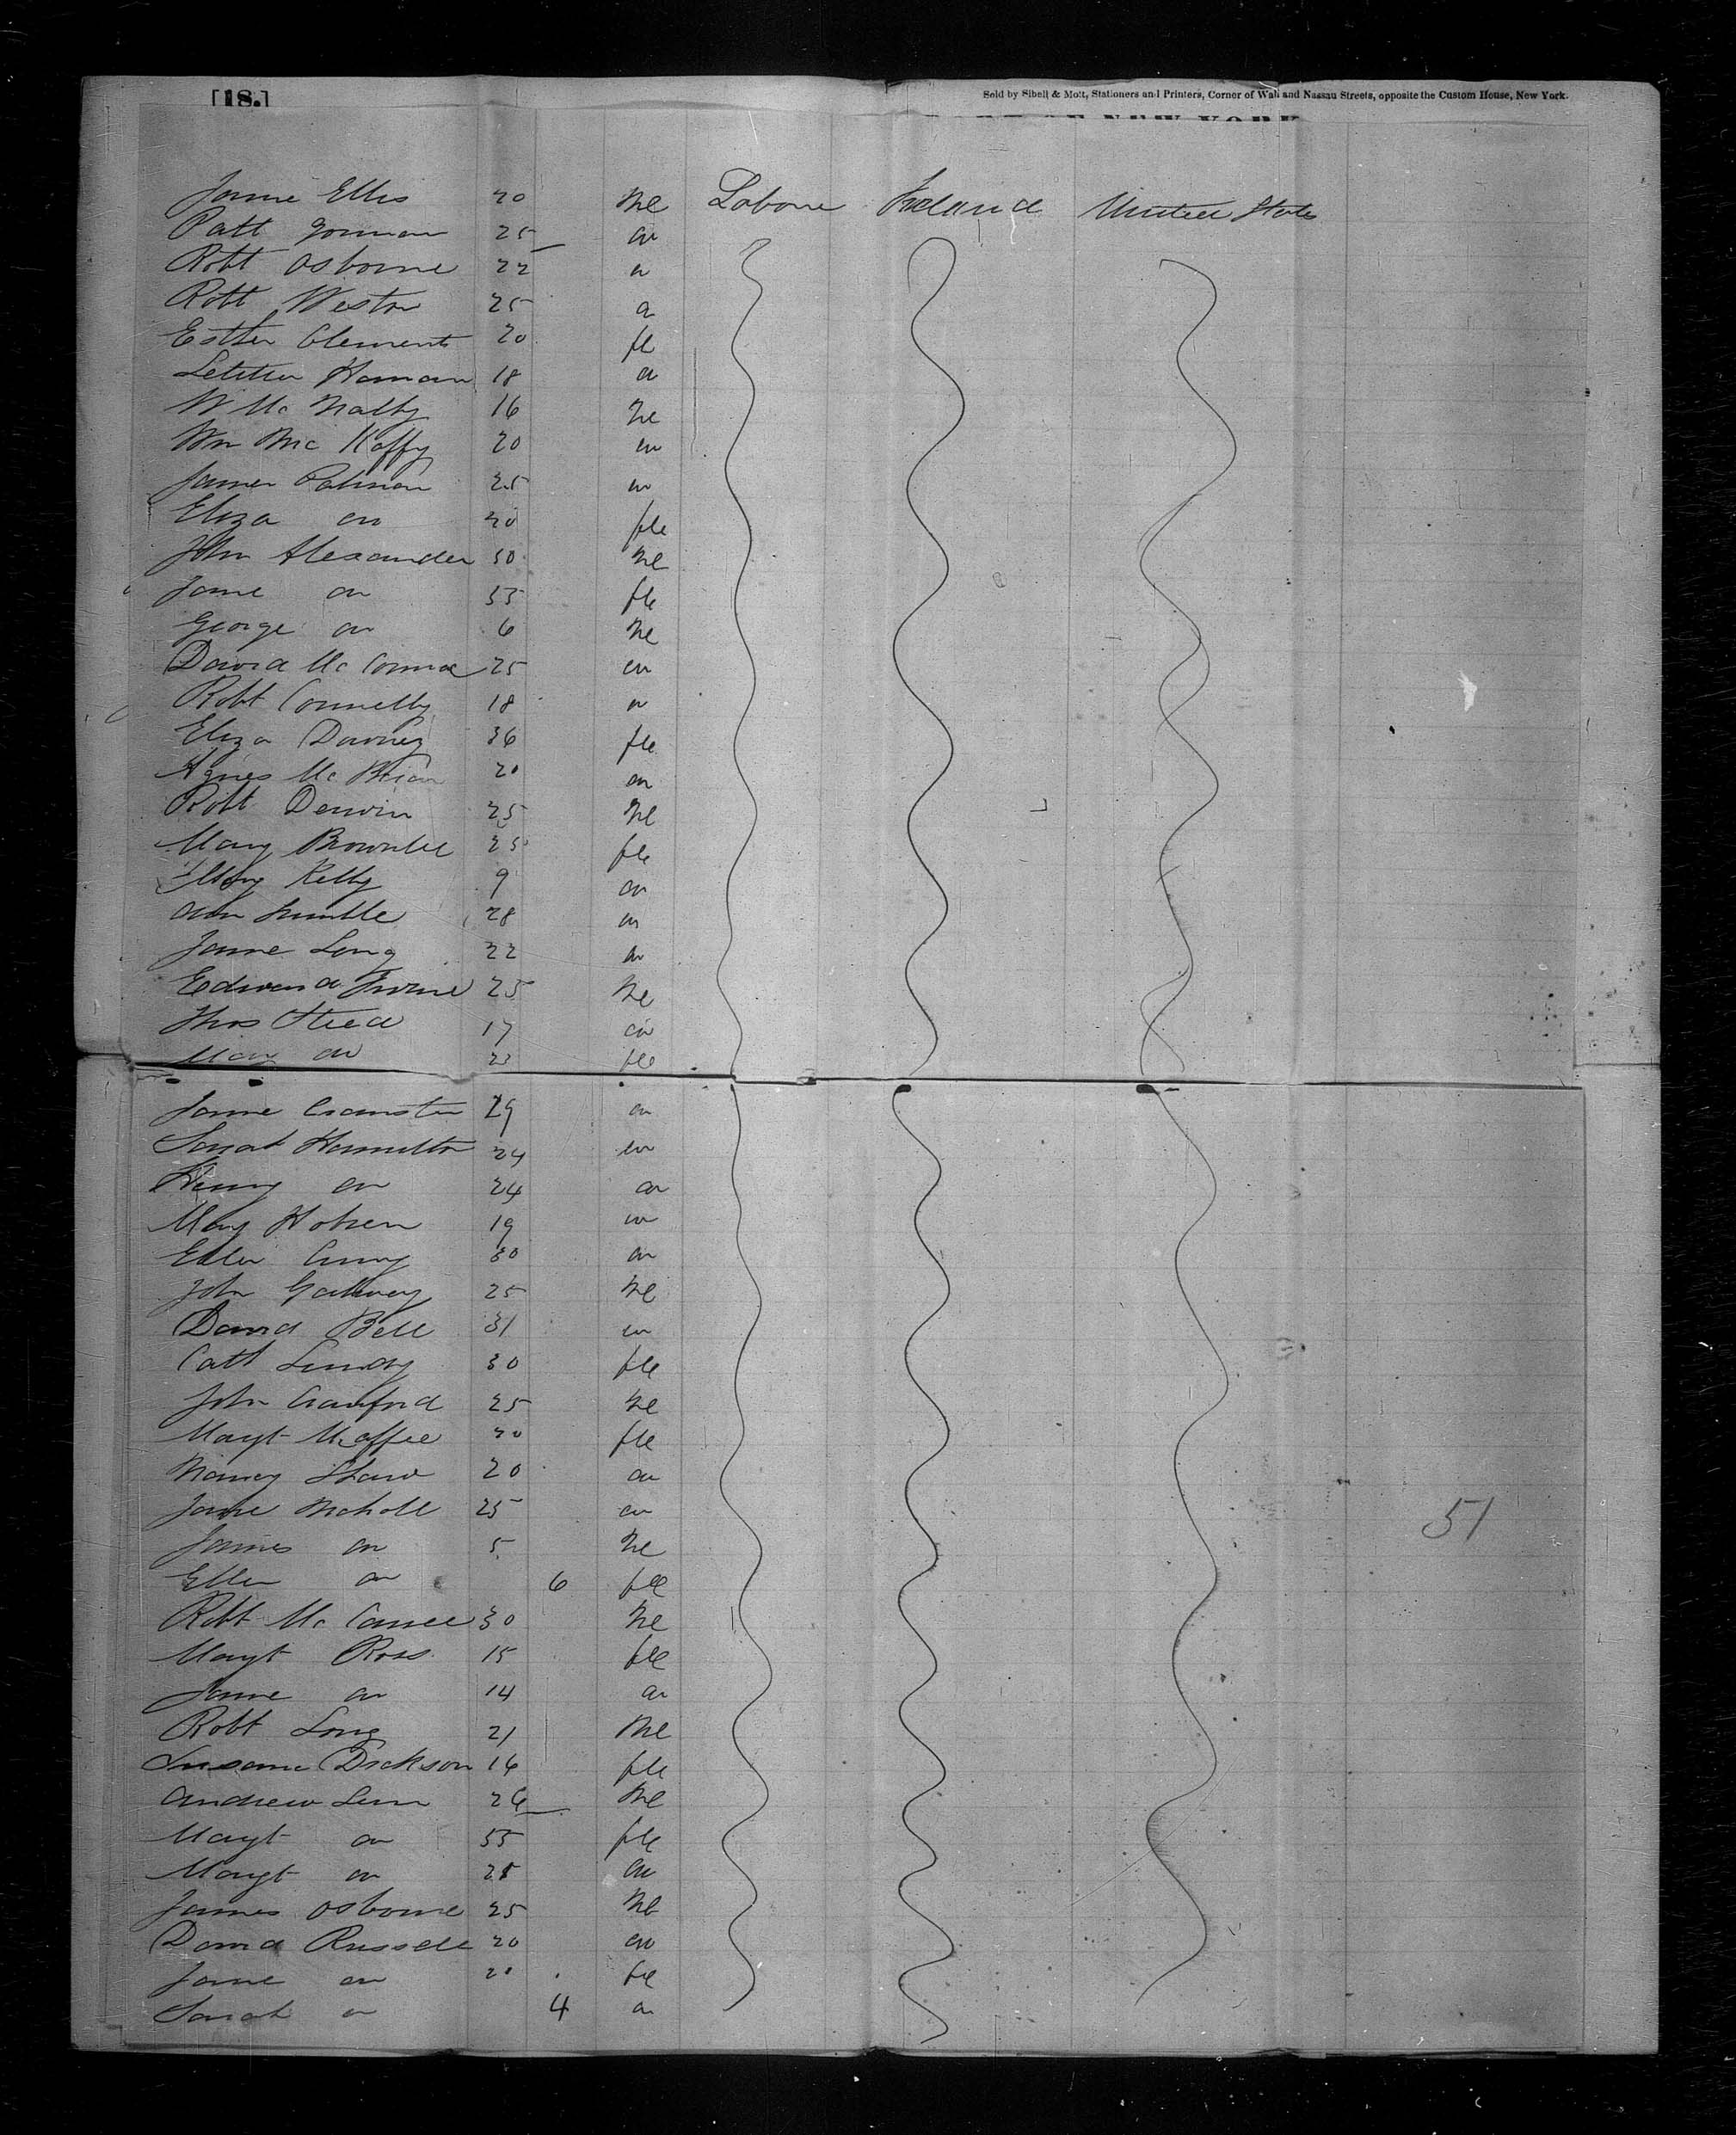 [18.]
Sold by Sibell & Mott, Stationers and Printers, Corner of Wall and Nassau Streets, opposite the Custom House, New York.
Jane Ellis 20 Me Laboure Ireland United States
Patt Gorman 25 do
Robt Osborne 22 do
Robt Weston 25 do
Esther Clements 20 fe
Letitia Haman 18 do
W Mc Nally 16 Me
Wm Mc Haffy 20 do
James Patinon 25 do
Eliza do 20 fle
John Alexander 50 Me
Jane do 55 fle
George do 6 Me
David Mc Connel 25 do
Robt Connelly 18 do
Eliza Downey 36 fle
Agnes Mc Brian 20 do
Robt Derwin 25 Me
Mary Brownlee 25 fle
Mary Kelly 9 do
Ann 28 do
Jane Long 22 do
Edward Irvine 25 Me
Thos Steed 17 do
Mary do 23 fle
Jane Cranston 29 do
Sarah Hamilton 24 do
Henry do 24 do
Mary Hobsen 19 do
30 do
John Gallway 25 Me
David Bell 31 do
Cath Lundy 30 fle
John Crawford 25 Me
Mayt McAffee 20 fle
Nancy Shaw 20 do
Jane Nicholl 25 do
James do 5 Me
Ellen do 6 fle
Robt Mc Camee 30 Me
Mayt Ross 15 fle
Jane do 14 do
Robt Long 21 Me
Susana Dickson 16 fle
Andrew Lem 26 Me
Mayt do 55 fle
Mayt do 25 do
James Osborne 25 Me
David Russell 20 do
Jane do 20 fe
Sarah do 4 do
51